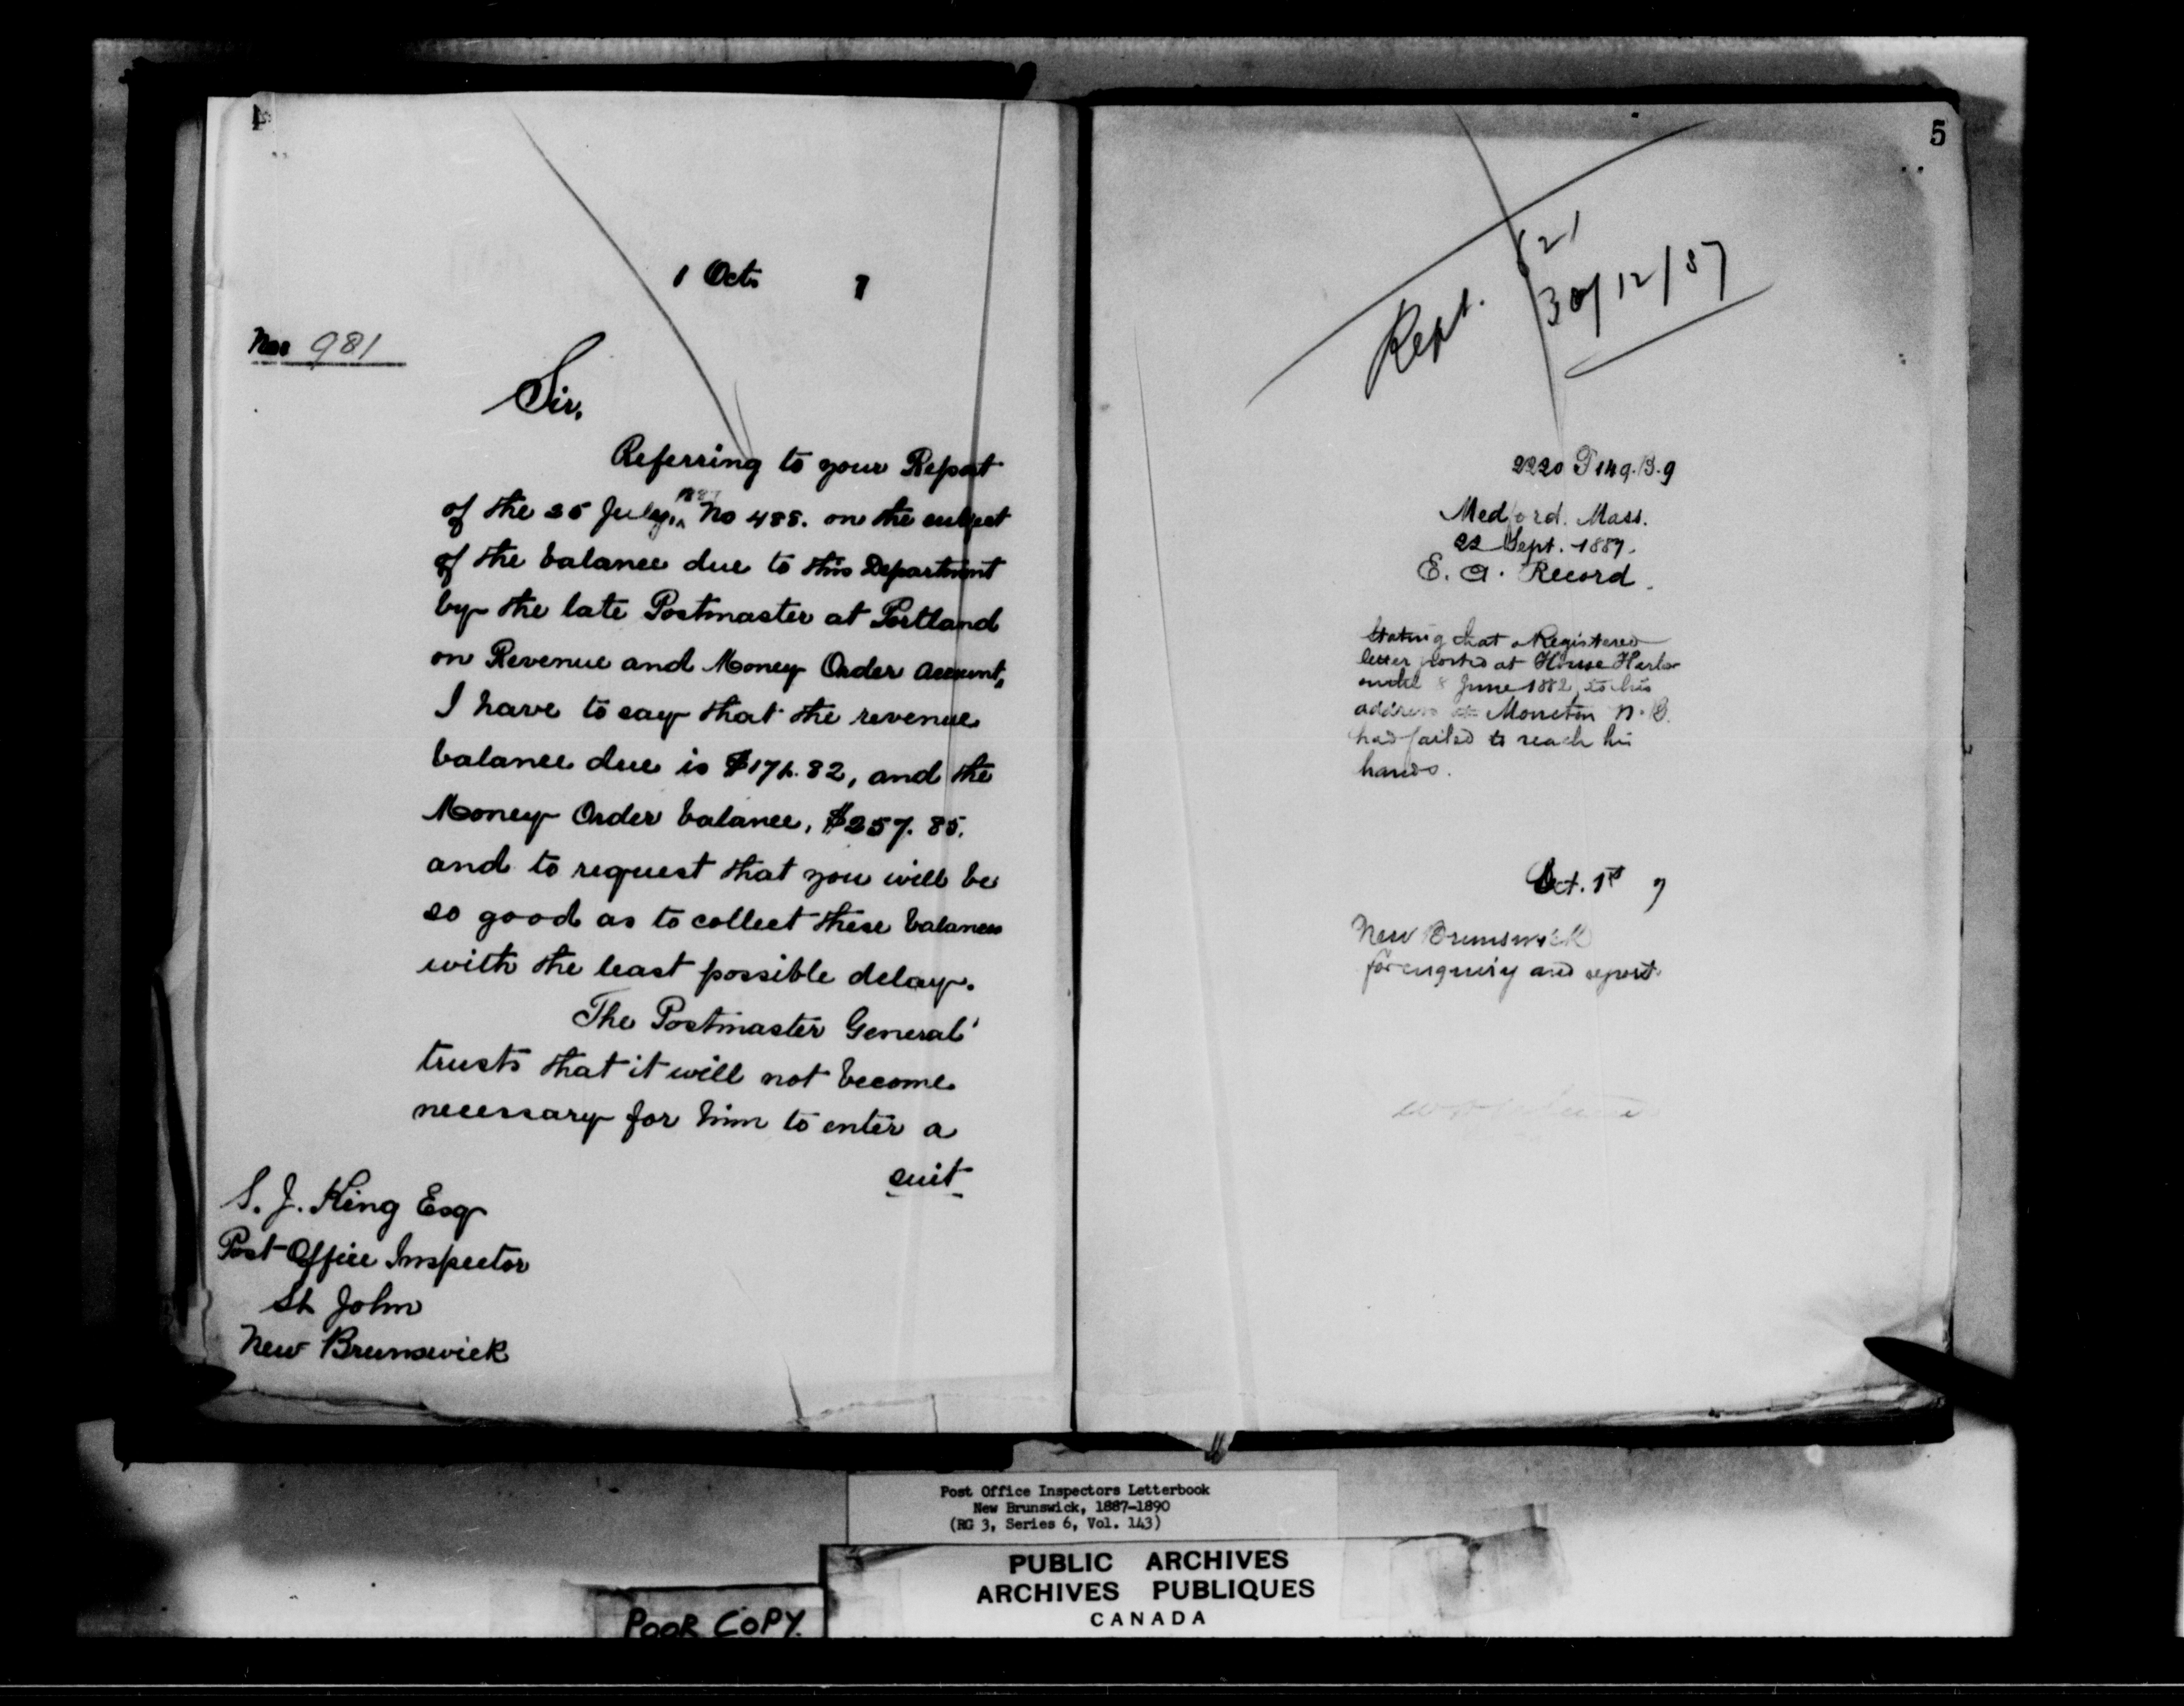 4
1 Oct. 7
No. 981
Sir,
Referring to your Report
of the 25 July, 1887 No 485. on the subject
of the balance due to this Department
by the late Postmaster at Portland
on Revenue and Money Order account,
I have to say that the revenue
balance due is $17 .82, and the
Money Order balance, $257.85.
and to request that you will be
so good as to collect these balances
with the least possible delay.
The Postmaster General
trusts that it will not become
necessary for him to enter a
suit
S. J. King Esq
Post Office Inspector
St John
New Brunswick
5
Rept. 30/12/87
2220 149.B.9
Medford. Mass.
22 Sept. 1887.
E. A. Record.
Stating that a Registered
letter posted at House Harbor
8 June 1882, to his
address at Moncton N.B.
had failed to reach his
hands.
Oct. 1st 7
New Brunswick
for enquiry and report.
Post Office Inspectors Letterbook
New Brunswick, 1887-1890
(RG 3, Series 6, Vol. 143)
PUBLIC ARCHIVES
ARCHIVES PUBLIQUES
CANADA
POOR COPY.